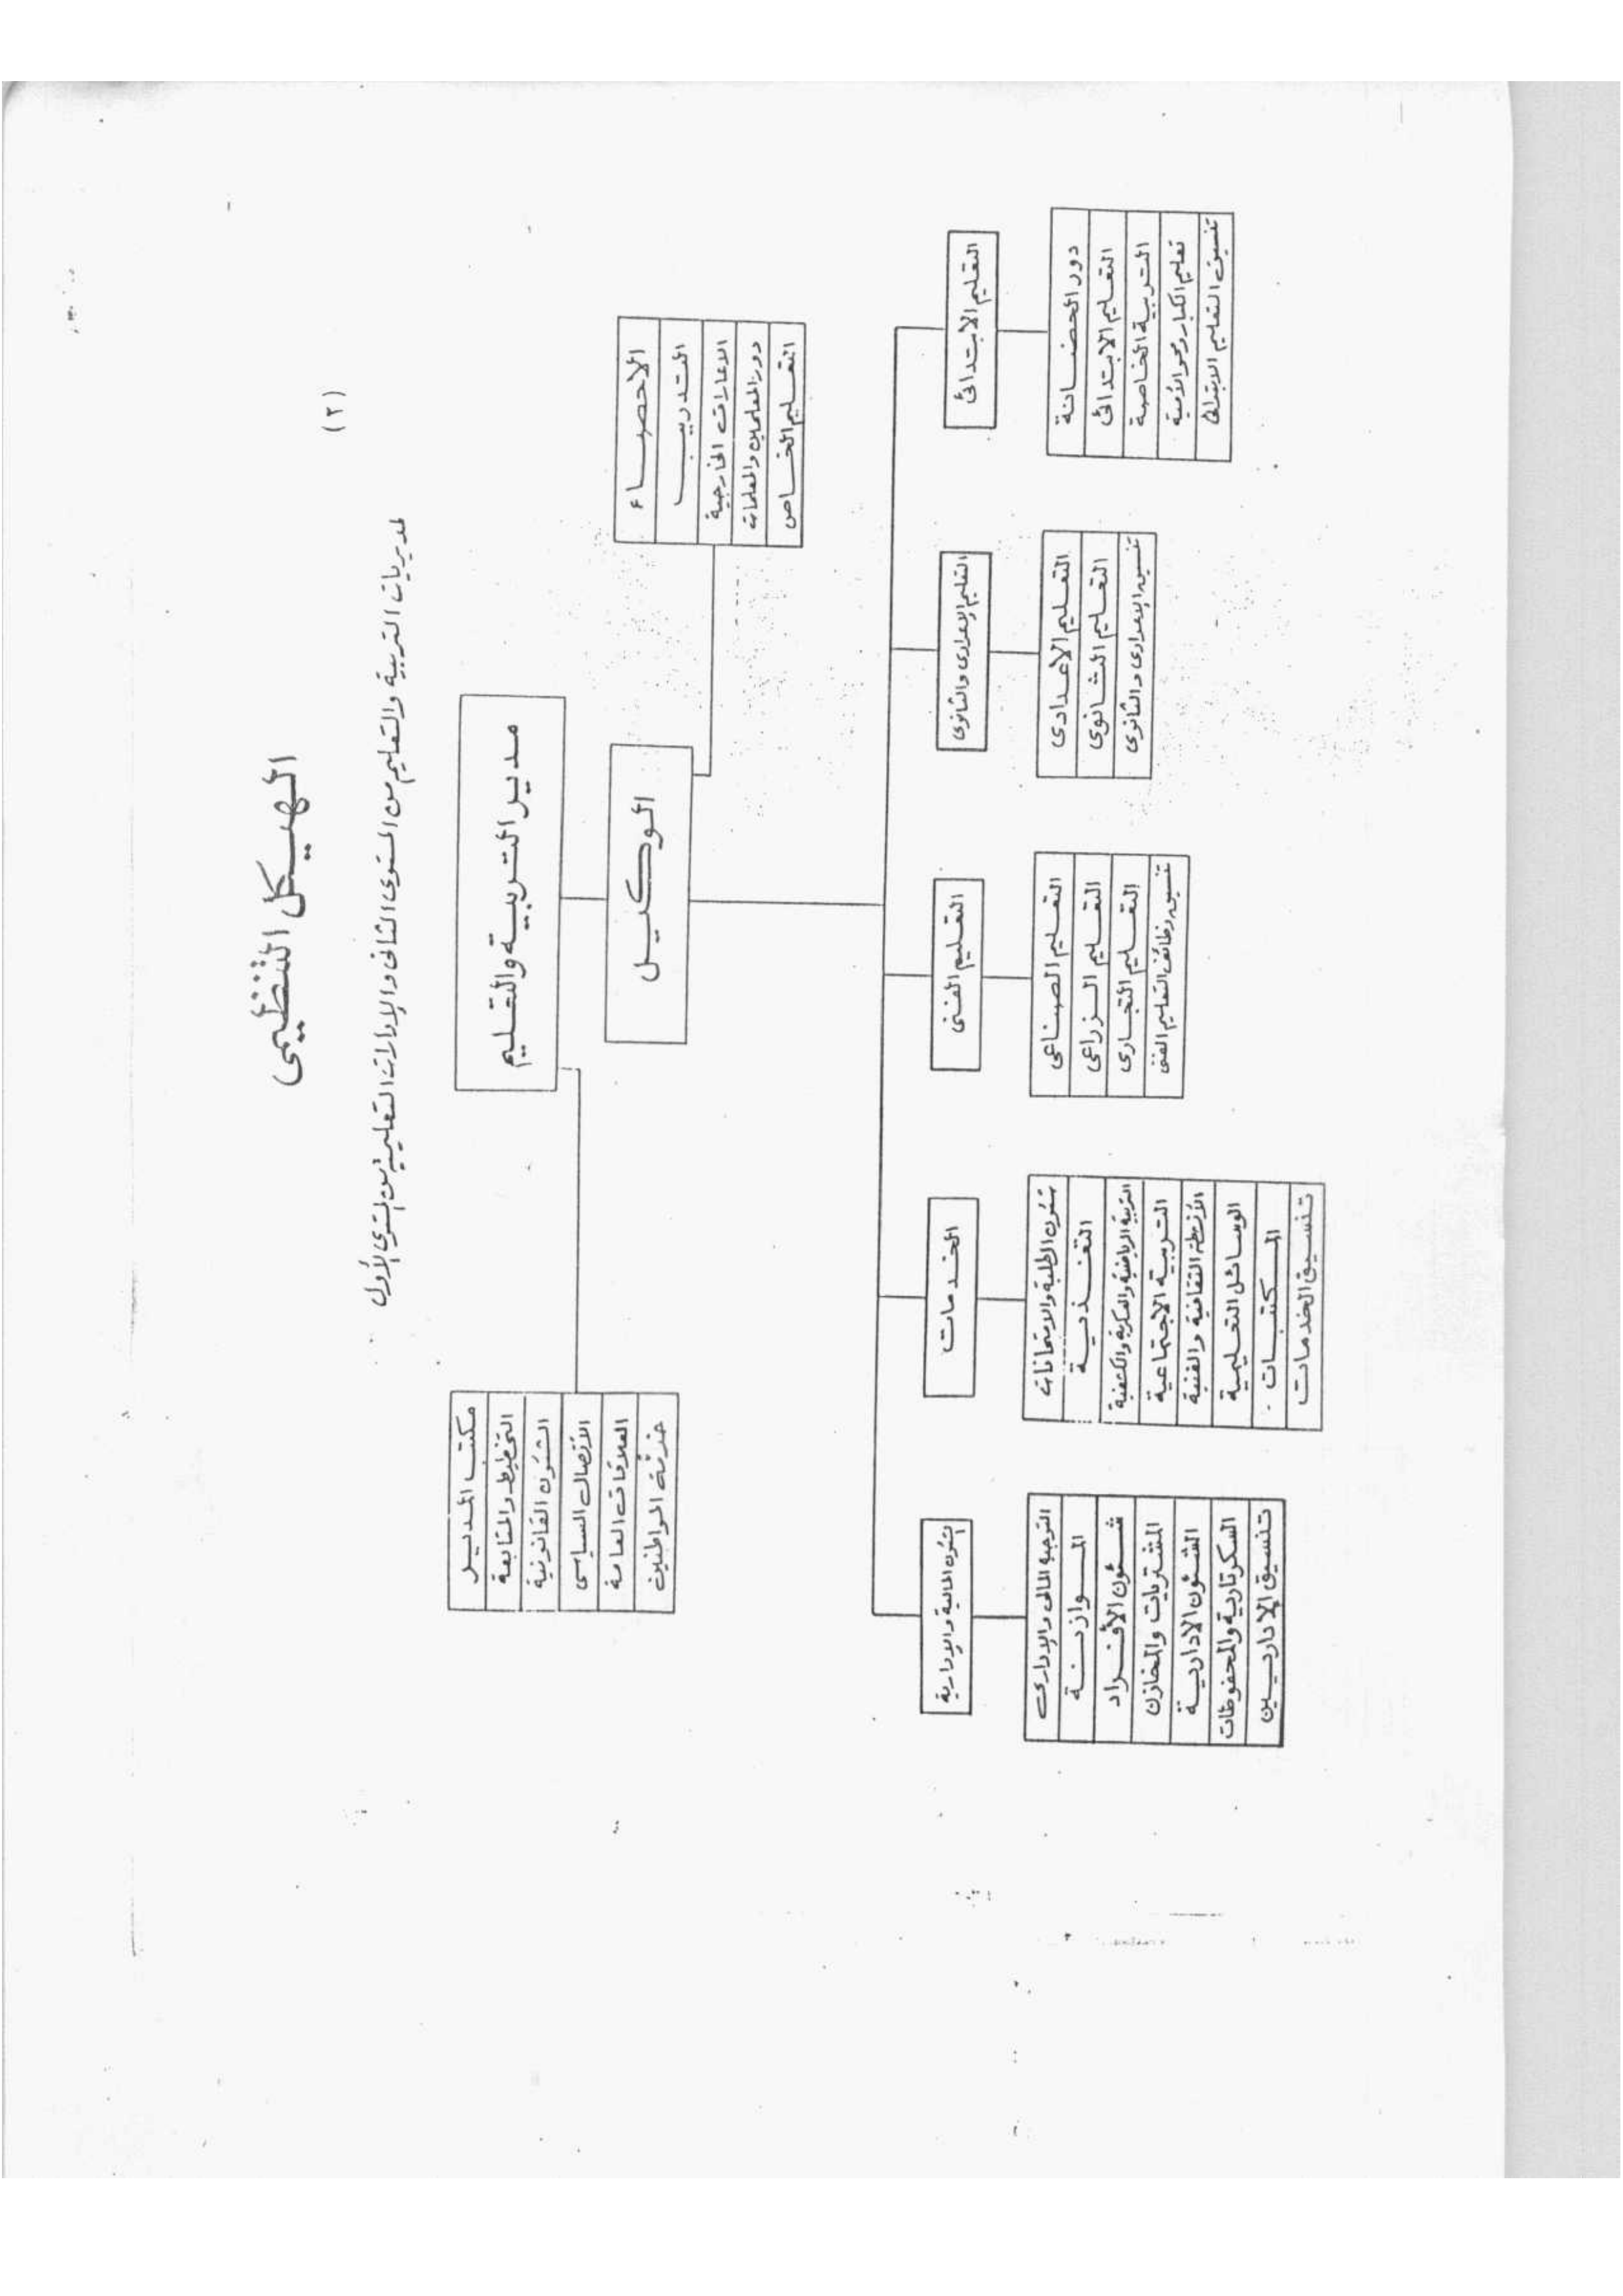 (٢)
الهيكل التنظيمى
لمديريات التربية والتعليم من المستوى الثانى والإدارات التعليمية من المستوى الأول
مدير التربية والتعليم
الوكيل
الاحصاء
التدريب
الاعارات الخارجية
دور المعلمين والمعلمات
التعليم الخاص
مكتب المدير
التخطيط والمتابعة
الشئون القانونية
الاتصال السياسى
العلاقات العامة
خدمة المواطنين
التعليم الابتدائى
دور الحضانة
التعليم الابتدائى
التربية الخاصة
تعليم الكبار ومحو الأمية
تنسيق التعليم الابتدائى
التعليم الإعدادى والثانوى
التعليم الاعدادى
التعليم الثانوى
تنسيق الإعدادى والثانوى
التعليم الفنى
التعليم الصناعى
التعليم الزراعى
التعليم التجارى
تنسيق وظائف التعليم الفنى
الخدمات
شئون الطلبة والامتحانات
التغذية
التربية الرياضية والعسكرية والكشفية
التربية الاجتماعية
الأنشطة الثقافية والفنية
الوسائل التعليمية
المكتبات
تنسيق الخدمات
الشئون المالية والإدارية
التوجيه المالى والإدارى
الموازنة
شئون الأفراد
المشتريات والمخازن
الشئون الادارية
السكرتارية والمحفوظات
تنسيق الإداريين